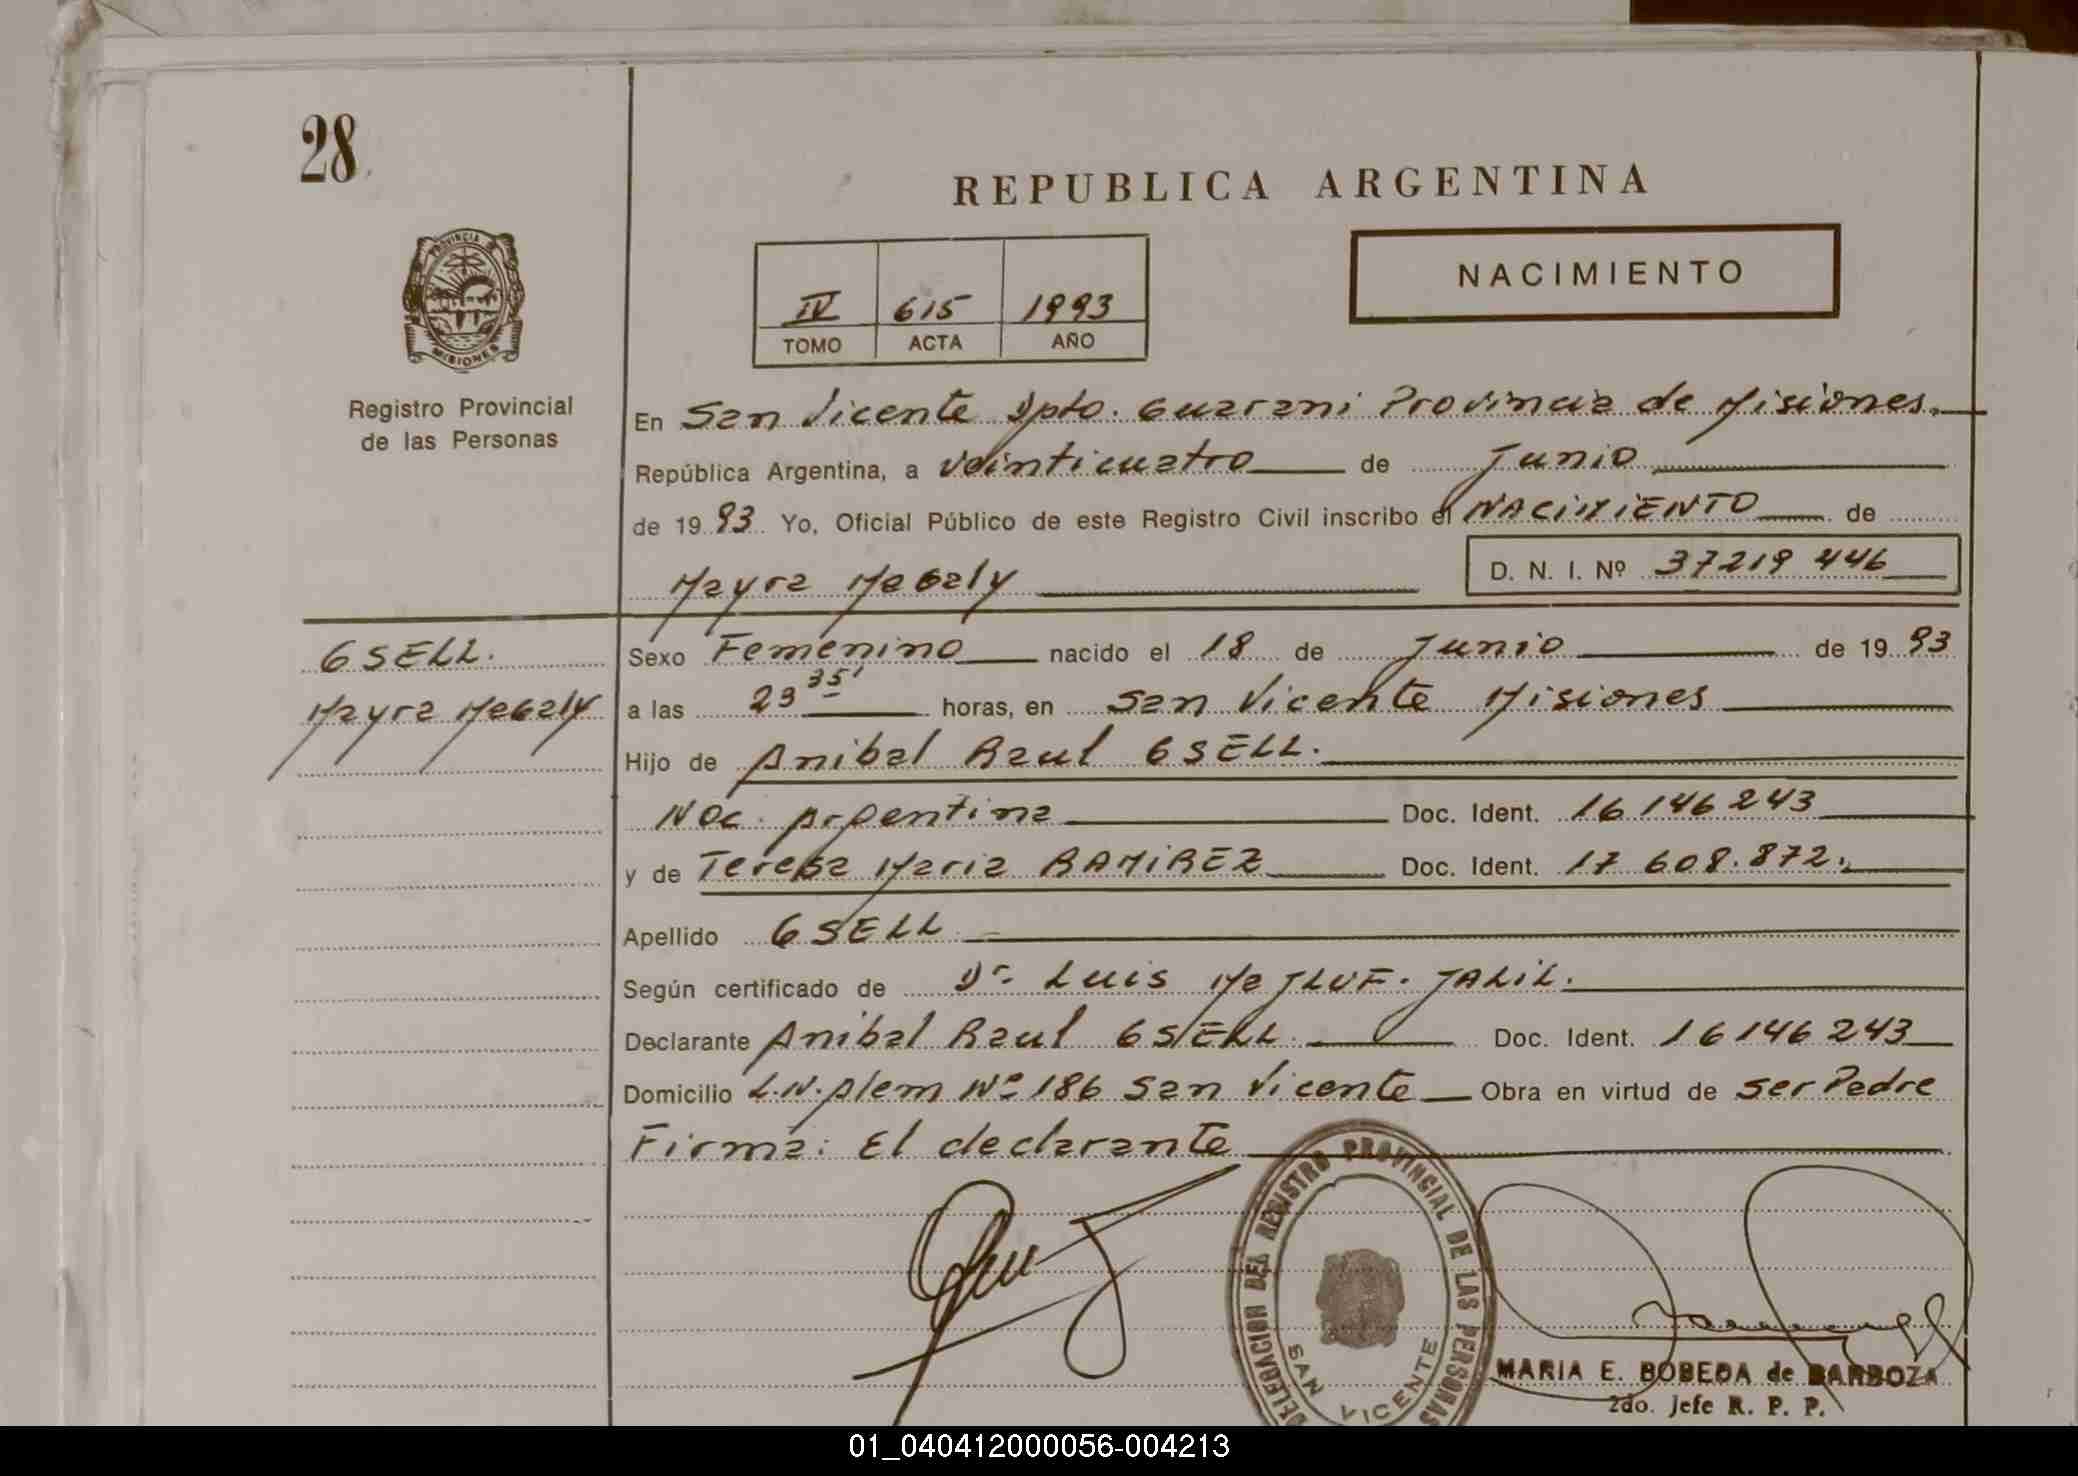 28
REPUBLICA ARGENTINA
PROVINCIA DE
MISIONES
Registro Provincial
de las Personas
IV 615 1993
TOMO ACTA AÑO
NACIMIENTO
En San Vicente Dpto. Guarani Provincia de Misiones.
República Argentina, a veinticuatro de Junio
de 1993 Yo, Oficial Público de este Registro Civil inscribo el NACIMIENTO de
Mayra Magaly D. N. I. Nº 37219 446
GSELL.
Mayra Magaly
Sexo Femenino nacido el 18 de Junio de 1993
a las 23 35' horas, en San Vicente Misiones
Hijo de Anibal Raul GSELL.
Nac. Argentina Doc. Ident. 16 146 243
y de Teresa Maria RAMIREZ Doc. Ident. 17 608.872.
Apellido GSELL
Según certificado de Dr. Luis JALIL.
Declarante Anibal Raul GSELL. Doc. Ident. 16 146 243
Domicilio L.N. Alem Nº 186 San Vicente Obra en virtud de ser Padre
Firma: El declarante
DELEGACION DEL REGISTRO PROVINCIAL DE LAS PERSONAS
SAN VICENTE
MARIA E. BOBEDA de BARBOZA
2do. Jefe R. P. P.
01_040412000056-004213